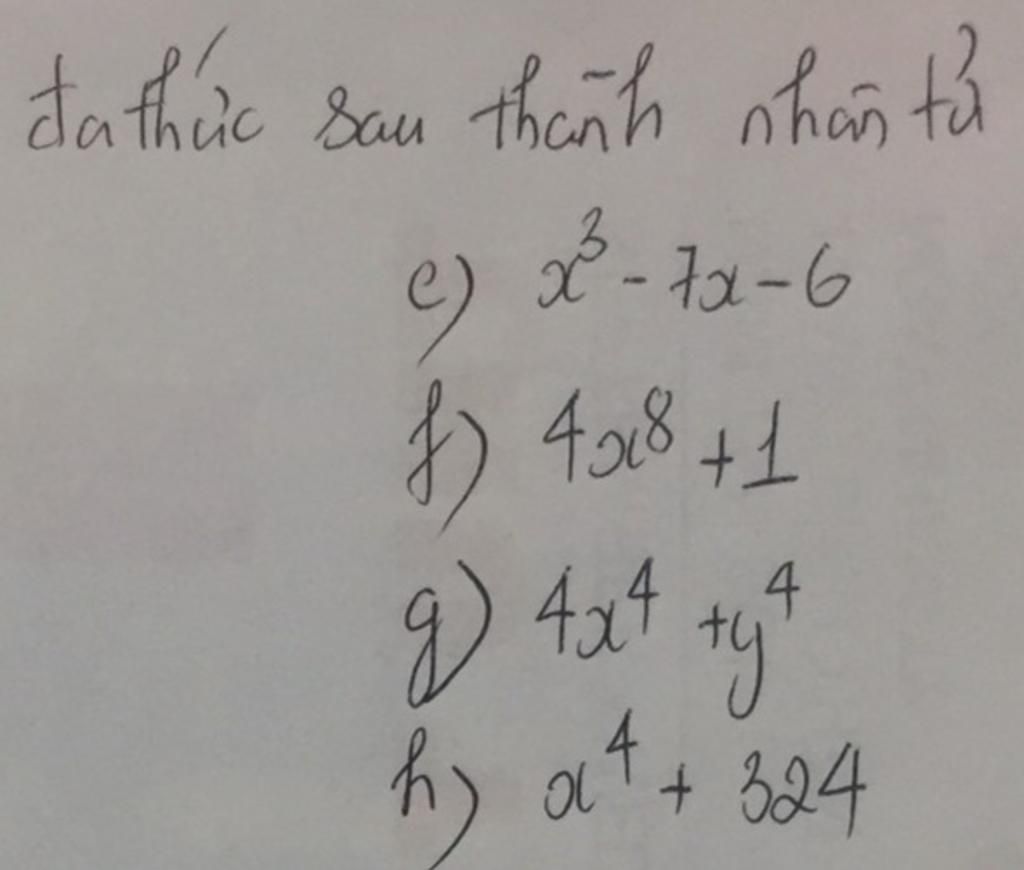 đa thức sau thành nhân tử
e) x³ - 7x - 6
f) 4x⁸ + 1
g) 4x⁴ + y⁴
h) x⁴ + 324